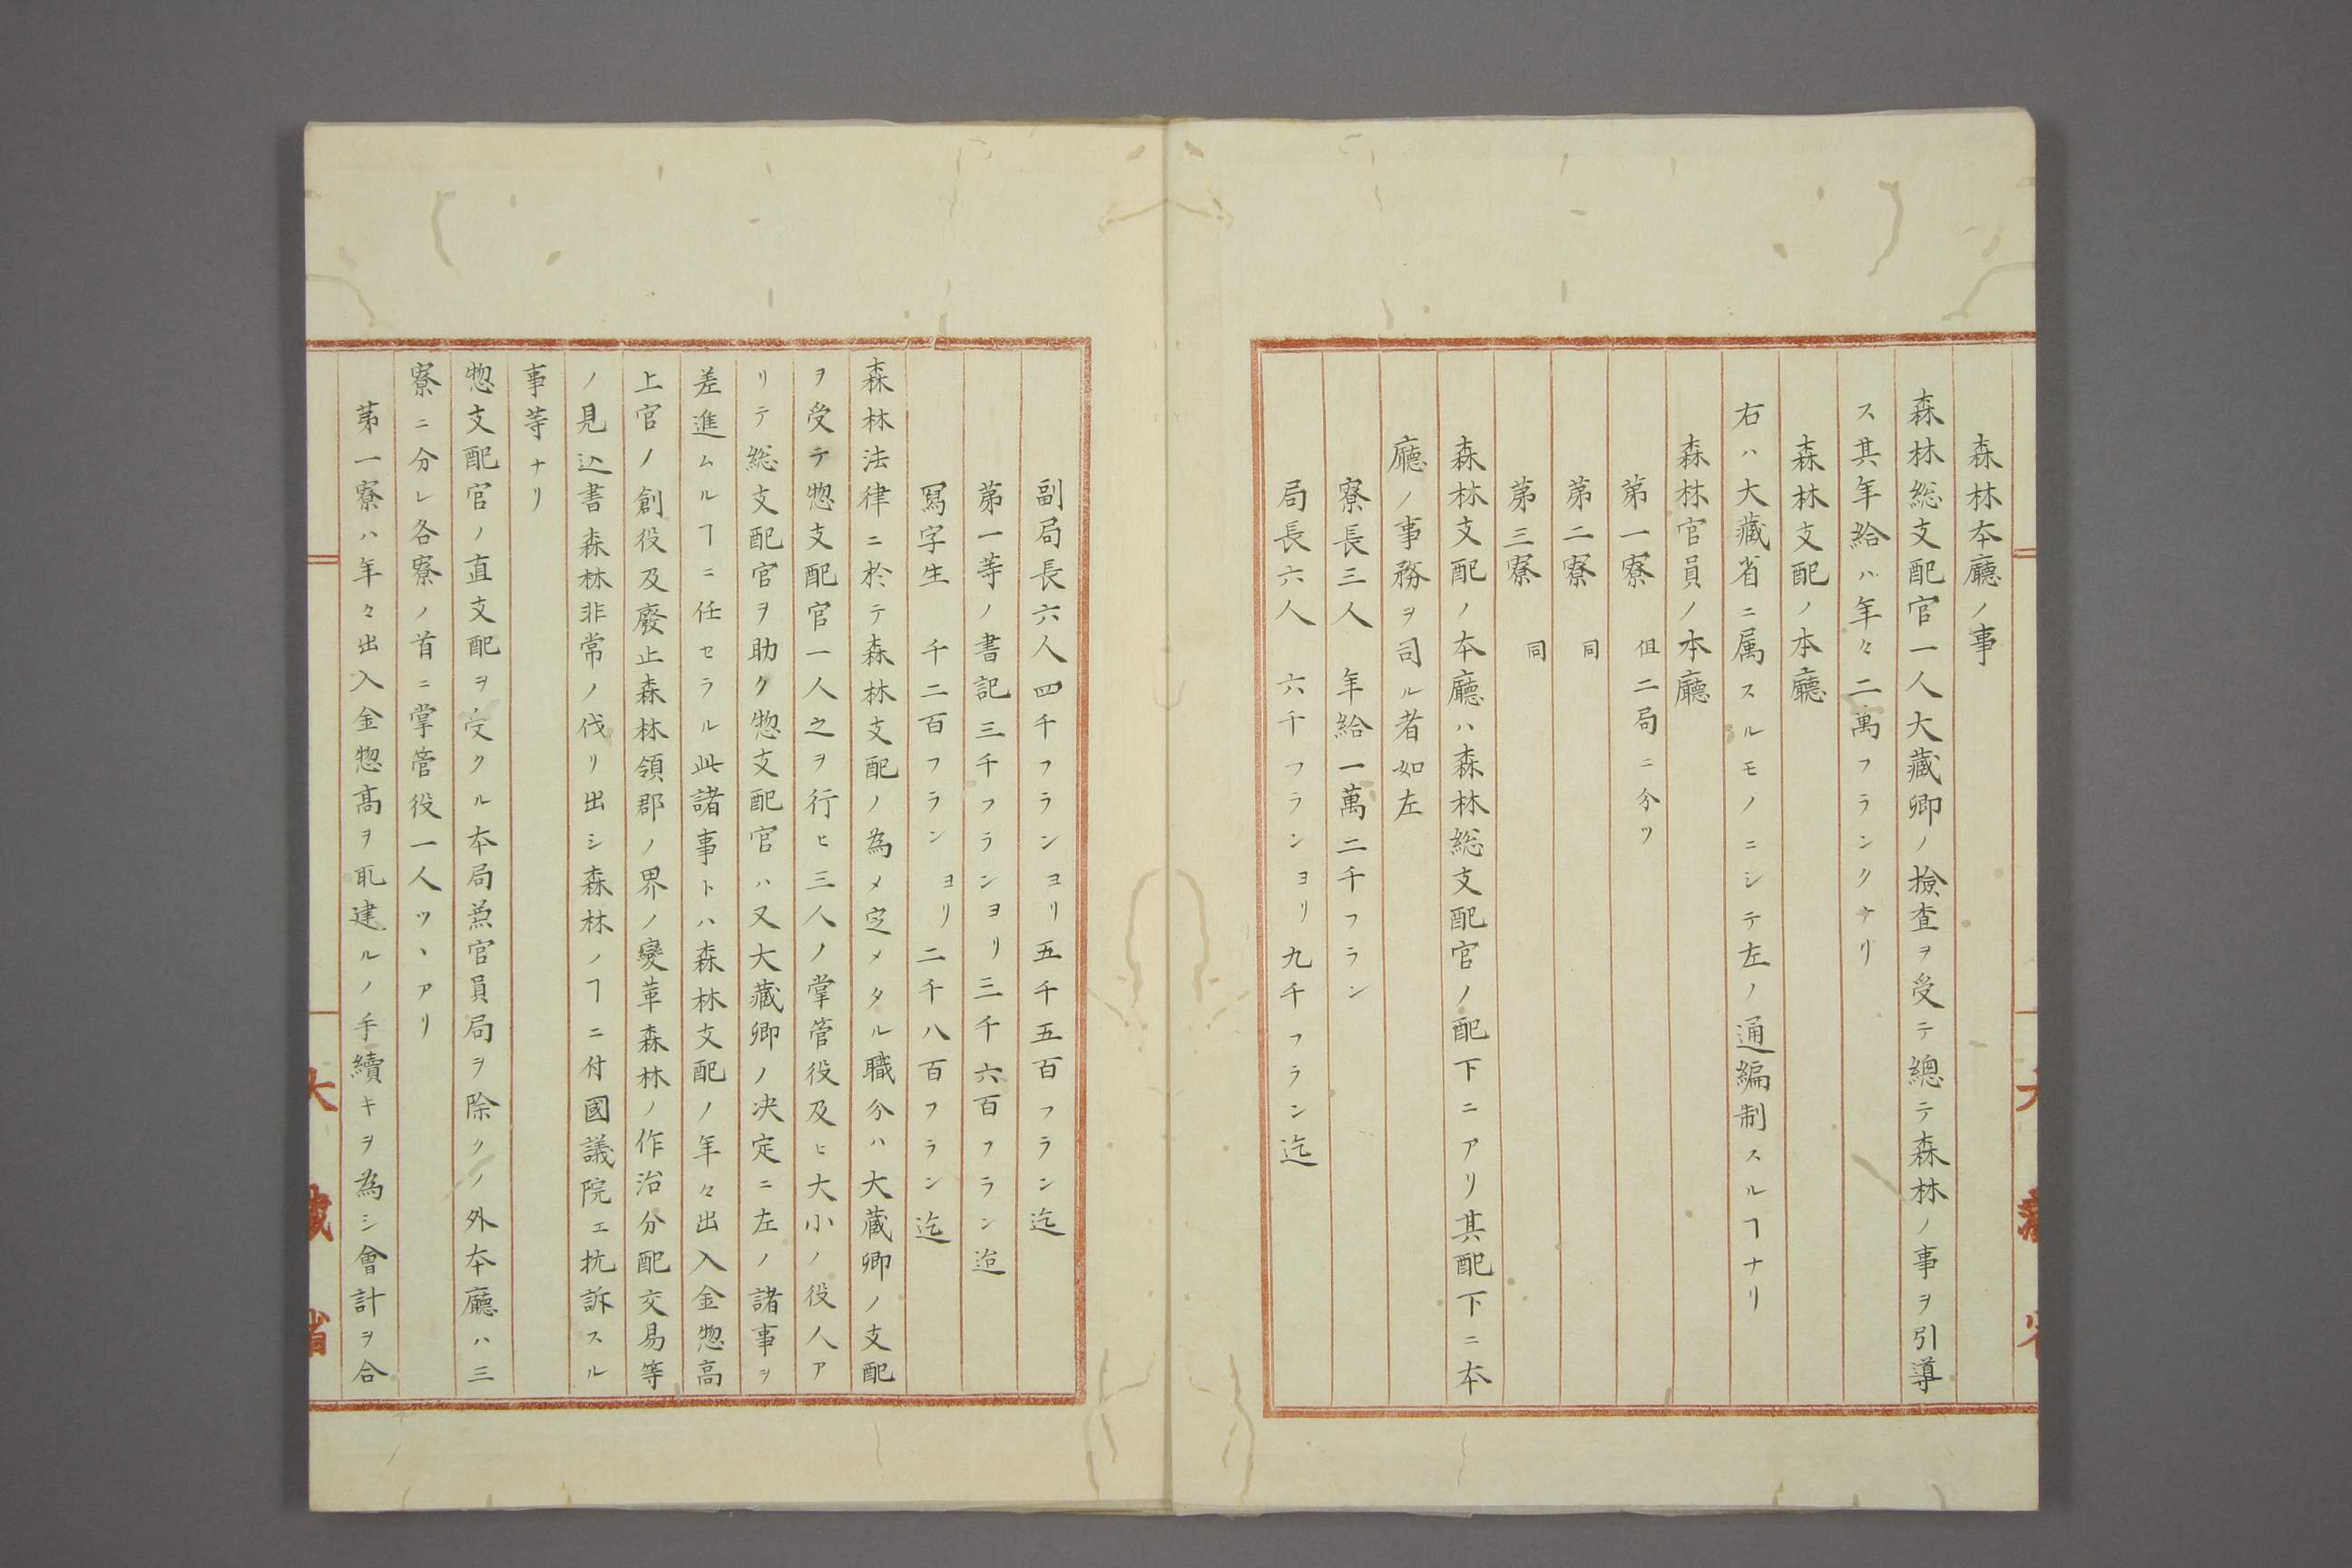 森林本廳ノ事
森林総支配官一人大藏卿ノ檢査ヲ受テ總テ森林ノ事ヲ引導
ス其年給ハ年々二萬フランクナリ
森林支配ノ本廳
右ハ大藏省ニ属スルモノニシテ左ノ通編制スルヿナリ
森林官員ノ本廳
第一寮 但二局ニ分ツ
第二寮 同
第三寮 同
森林支配ノ本廳ハ森林総支配官ノ配下ニアリ其配下ニ本
廳ノ事務ヲ司ル者如左
寮長三人 年給一萬二千フラン
局長六人 六千フランヨリ九千フラン迄
副局長六人四千フランヨリ五千五百フラン迄
第一等ノ書記三千フランヨリ三千六百フラン迨
冩字生 千二百フランヨリ二千八百フラン迄
森林法律ニ於テ森林支配ノ為メ定メタル職分ハ大蔵卿ノ支配
ヲ受テ惣支配官一人之ヲ行ヒ三人ノ掌管役及ヒ大小ノ役人ア
リテ総支配官ヲ助ク惣支配官ハ又大藏卿ノ决定ニ左ノ諸事ヲ
差進ムルヿニ任セラル此諸事トハ森林支配ノ年々出入金惣高
上官ノ創役及廢止森林領郡ノ界ノ變革森林ノ作治分配交易等
ノ見込書森林非常ノ伐リ出シ森林ノヿニ付國議院エ抗訴スル
事等ナリ
惣支配官ノ直支配ヲ受クル本局兼官員局ヲ除クノ外本廳ハ三
寮ニ分レ各寮ノ首ニ掌管役一人ツヽアリ
第一寮ハ年々出入金惣髙ヲ取建ルノ手續キヲ為シ會計ヲ合
大藏省